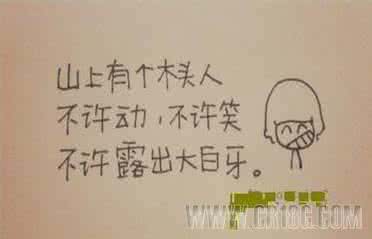 山上有个木头人
不许动，不许笑
不许露出大白牙。